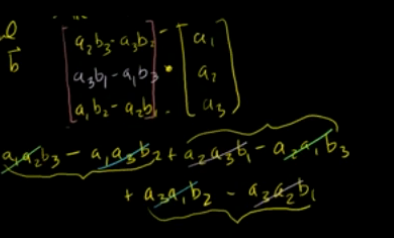 b
a₂b₃ - a₃b₂ a₁
a₃b₁ - a₁b₃ • a₂
a₁b₂ - a₂b₁ a₃
a₁a₂b₃ - a₁a₃b₂ + a₂a₃b₁ - a₂a₁b₃
+ a₃a₁b₂ - a₃a₂b₁